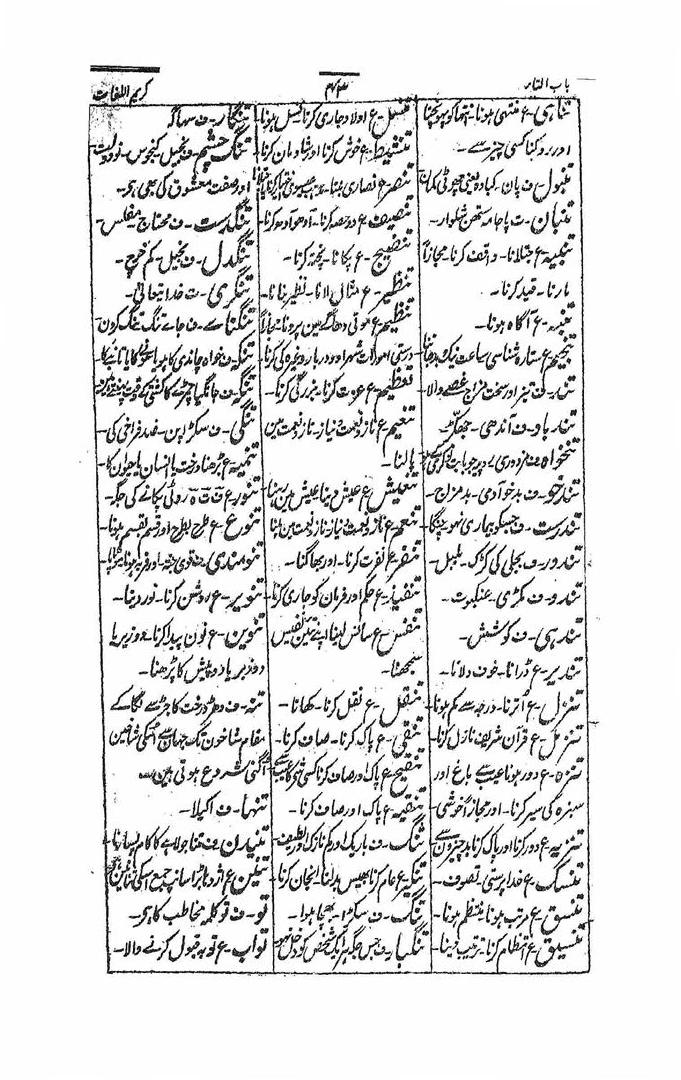 باب التاء
۴۳
کریم اللغات
تناہی - ع منتہی ہونا - انتہا کو پہونچنا
اور روکنا کسی چیز سے -
تنبول - ف پان -
تنبان - ت پاجامہ شلوار -
تنبیہ - ع جتلانا - واقف کرنا - مجازاً
مارنا - قید کرنا -
تنبہ - ع آگاہ ہونا -
تنجیم ع ستارہ شناسی ساعت نیک
تند - ف تیز اور سخت مزاج غصے والا -
تند باد - ف آندھی - جھکڑ -
تنخواہ ف مزدوری
تندخو - ف بدخو آدمی - بدمزاج -
تندرست - ف جسکو بیماری نہو - چنگا
تندور - ف بجلی کی کڑک - بلبل -
تندو - ف مکڑی - عنکبوت -
تندہی - ف کوشش -
تندیر - ع ڈرانا - خوف دلانا -
تنزل - ع اترنا - درجہ سے کم ہونا -
تنزیل - ع قرآن شریف نازل کرنا -
تنزہ - ع دور ہونا عیب سے باغ اور
سبزہ کی سیر کرنا - اور مجازاً خوشی -
تنزیہ - ع دور کرنا اور پاک کرنا بد چیزوں سے
تنسک - ع خدا پرستی - تصوف -
تنسق - ع مرتب ہونا - منتظم ہونا -
تنسیق - ع انتظام کرنا - ترتیب دینا -
تنسل - ع اولاد جاری کرنا نسل ہونا -
تنشیط - ع خوش کرنا اور شادمان کرنا -
تنصر - ع نصاری بننا -
تنصیف - ع دو حصہ کرنا - آدھوآدھ کرنا -
تنضیج - ع پکانا - پختہ کرنا -
تنظیر - ع مثال لانا - نظیر بنانا -
تنظیم ع موتی دھاگے مین پرونا - مجازاً
درستی امورات شعر اور دربار وغیرہ کی کرنا
تعظیم ع عزت کرنا - بزرگی کرنا -
تنعیم - ع ناز نعمت نیاز - ناز و نعمت مین
پالنا -
تعیش ع عیش مینا عیش مین رہنا
تنعم - ع ناز و نعمت نیاز - ناز نعمت مین
تنفر - ع نفرت کرنا - اور بھاگنا -
تنفیذ - ع حکم اور فرمان کو جاری کرنا -
تنفس - ع سانس لینا اپنے تئین نفیس
سمجھنا -
تنقل - ع نقل کرنا - کھانا -
تنقی - ع پاک کرنا - صاف کرنا -
تنقیح - ع پاک اور صاف کرنا کسی شی کا عیب سے
تنقیہ - ع پاک اور صاف کرنا -
تنک - ف باریک اور کم نازک اور لطیف
تنکر - ع عام کرنا بھیس بدلنا - انجان کرنا -
تنگ - ف سکڑا - بھچا ہوا -
تنگبار - ف جس جگہ ہر ایک شخص کو دخل نہو
تنگار - ف سہاگہ
تنگ چشم - ف بخیل - کنجوس - نو دولت -
اور صفت معشوق کی بھی ہے -
تنگدست - ف محتاج - مفلس -
تنگدل - ف بخیل - کم خرچ -
تنگری - ت خدا تعالیٰ -
تنگنائے - ف جائے تنگ تنگ کردن
تنکہ - ف خواہ چاندی کا ہو یا سونے کا یا تانبے کا
تنکہ - ف جانگیا چمڑے کا کشتی کے وقت پہنتے ہین
تنگی - ف سکڑا پن - ضد فراخی کی -
تنمیہ - ع بڑھنا درخت یا انسان یا حیوان کا -
تنور - ع ف ت ہ روٹی پکانے کی جگہ -
تنوع - ع طرح بطرح اور قسم بقسم ہونا -
تنومندی - ف قوی جثہ - اور فربہ ہونا
تنویر - ع روشن کرنا - نور دینا -
تنوین - ع نون پیدا کرنا - دو زبر یا
دو زیر یا دو پیش کا پڑھنا -
تنہ - ف دھڑ درخت کا جڑ سے لگا کے
مقام شاخون تک جہان سے اسکی شاخین
اگنی شروع ہوتی ہین -
تنہا - ف اکیلا -
تنیدن - ف تننا جولاہے کا کام
تنین - ع اژدہا بڑا سانپ جمع اسکی تنانین
تو - ف تو کلمہ مخاطب کا ہے -
تواب - ع توبہ قبول کرنے والا -